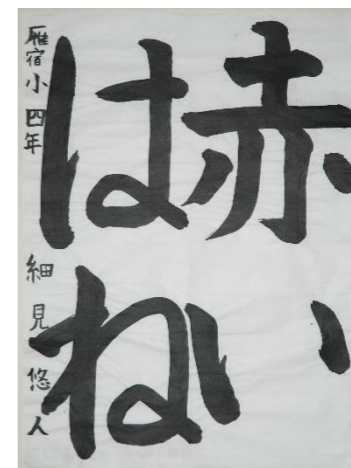 赤い
はね
雁宿小四年 細見悠人